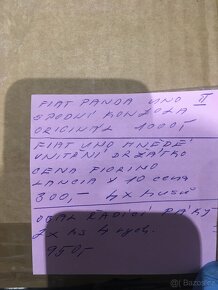 FIAT PANDA UNO II
SPODNÍ KONZOLA
ORIGINÁL 1000,-
FIAT UNO HNĚDÉ
VNITŘNÍ DRŽÁTKO
CENA FIORINO
LANCIA Y 10 CENA
300,- 4x KUSŮ
OBAL ŘADÍCÍ PÁKY
2x KS 4 rych.
950,-